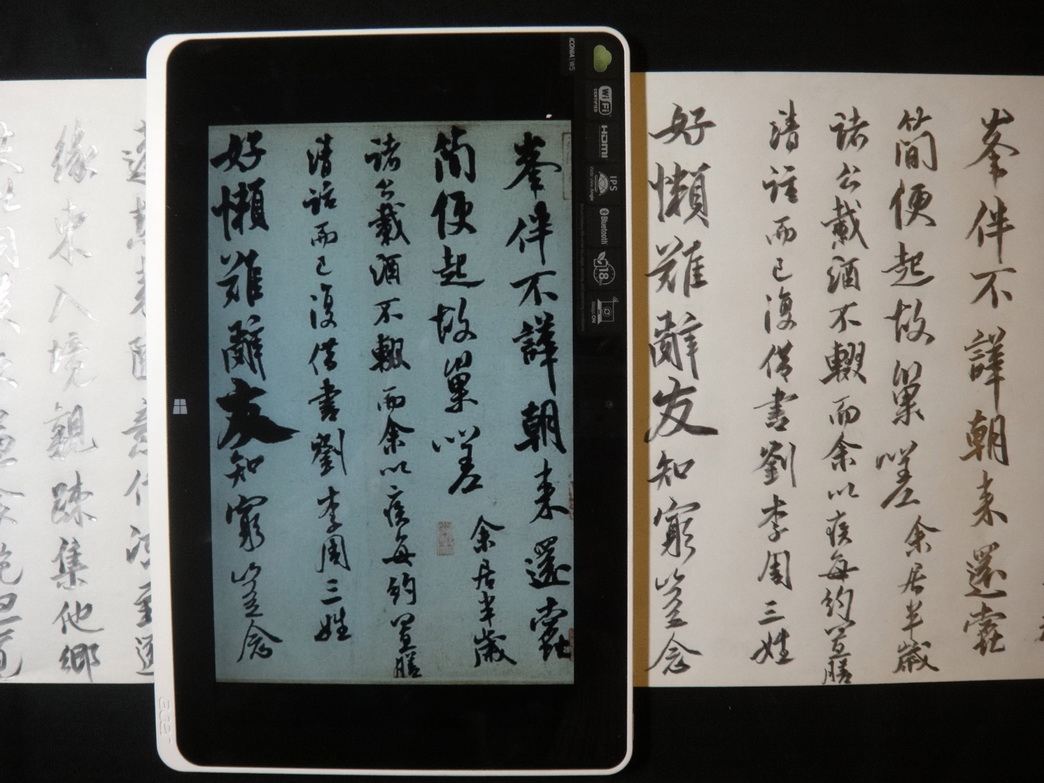 峯伴不譁朝来還蠹
簡便起故巢嗟
余居半歲
諸公載酒不輟而余以疾每約置膳
清話而已復借書劉李周三姓
好懶難辭友知窮豈念
峯伴不譁朝来還蠹
簡便起故巢嗟
余居半歲
諸公載酒不輟而余以疾每約置膳
清話而已復借書劉李周三姓
好懶難辭友知窮豈念
緣東入境親疎集他鄉
Wi Fi
CERTIFIED
HDMI
IPS
Bluetooth
18